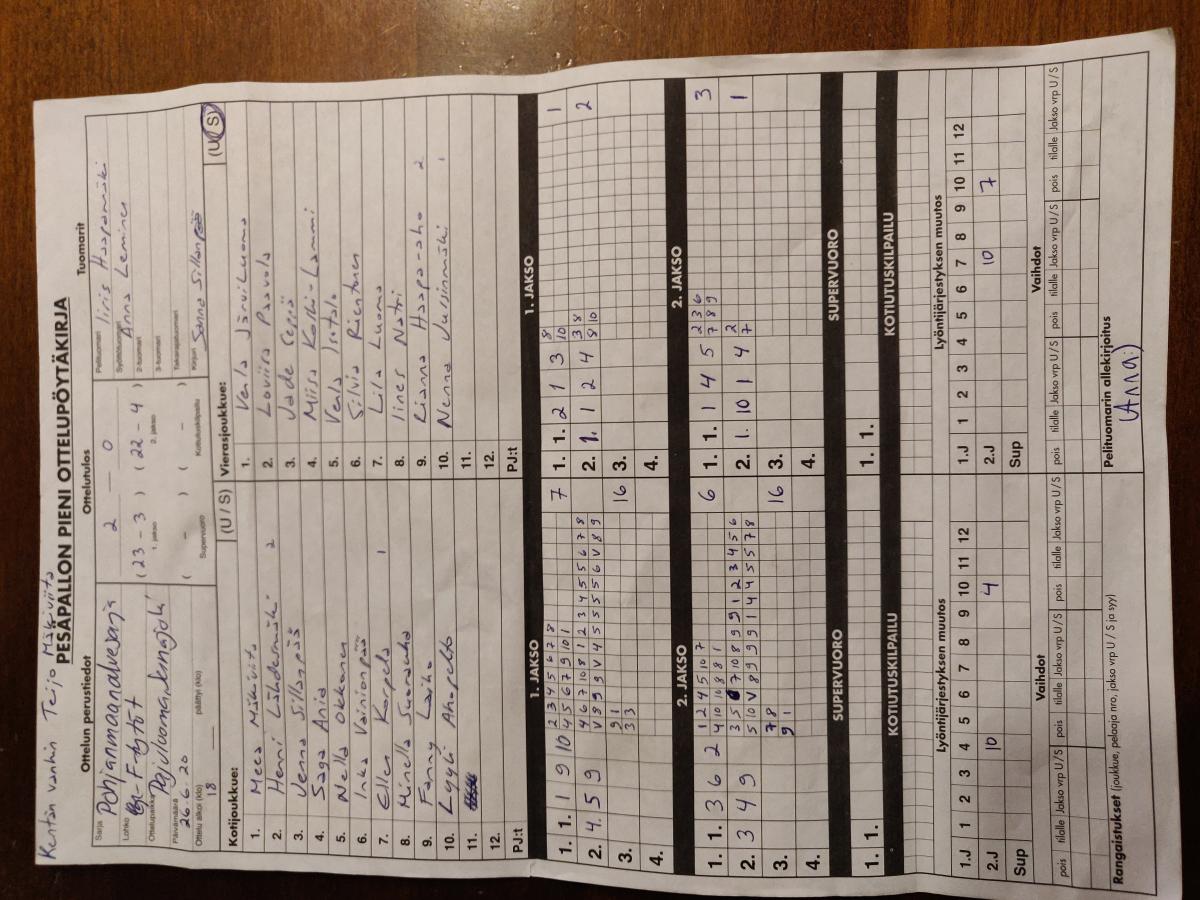 Kentän vanhin Teijo Mäkiviita
PESÄPALLON PIENI OTTELUPÖYTÄKIRJA
Ottelun perustiedot Ottelutulos Tuomarit
Sarja Pohjanmaanaluesarja
Lohko F-tytöt
Ottelupaikka
Päivämäärä 26.6.20
Ottelu alkoi (klo) 18 päättyi (klo)
2 – 0
( 23 – 3 ) ( 22 – 4 )
1. jakso 2. jakso
( – ) ( – )
Supervuoro Kotiutuskilpailu
Pelituomari Iiris Haapamäki
Syöttötuomari Anna Leminen
2-tuomari
3-tuomari
Takarajatuomari
Kirjuri Sanna Sillanpää
Kotijoukkue: (U / S) Vierasjoukkue: (U / S)
1. Meea Mäkiviita 1. Venla Järvi-Luoma
2. Henni Lähdesmäki 2 2. Loviisa Paavola
3. Jenna Sillanpää 3. Jade
4. Saga Ania 4. Miisa Korhi-Lammi
5. Nella Oksanen 5. Venla Isotalo
6. Inka Vainionpää 6. Silvia Rientonen
7. Ellen Korpela 1 7. Lila Luoma
8. Minella 8. Iines Natri
9. Fanny Laiho 9. Rianna Haapa-aho 2
10. Lyyli Ahopelto 10. Nenna Jussinmäki 1
11. 11.
12. 12.
PJ:t PJ:t
1. JAKSO 1. JAKSO
1. 1. 1 9 10 2 3 4 5 6 7 8 7 1. 1. 2 1 3 8 1
4 5 6 7 9 10 1 10
2. 4. 5 9 4 6 7 10 8 1 2 3 4 5 5 6 7 8 2. 1. 1 2 4 3 8 2
V 8 9 9 V 4 5 5 5 5 6 V 8 9 8 10
3. 9 1 16 3.
3 3
4. 4.
2. JAKSO 2. JAKSO
1. 1. 3 6 2 1 2 4 5 10 7 6 1. 1. 1 4 5 2 3 6 3
4 10 10 8 8 1 7 8 9
2. 3 4 9 3 5 6 7 10 8 9 9 1 2 3 4 5 6 2. 1. 10 1 4 2 1
5 10 V 8 9 9 9 1 4 4 5 5 7 8 7
3. 7 8 16 3.
9 1
4. 4.
SUPERVUORO SUPERVUORO
1. 1. 1. 1.
KOTIUTUSKILPAILU KOTIUTUSKILPAILU
Lyöntijärjestyksen muutos Lyöntijärjestyksen muutos
1 2 3 4 5 6 7 8 9 10 11 12 1 2 3 4 5 6 7 8 9 10 11 12
1.J 1.J
2.J 10 4 2.J 10 7
Sup Sup
Vaihdot Vaihdot
pois tilalle Jakso vrp U / S pois tilalle Jakso vrp U / S pois tilalle Jakso vrp U / S pois tilalle Jakso vrp U / S pois tilalle Jakso vrp U / S pois tilalle Jakso vrp U / S
Rangaistukset (joukkue, pelaaja nro, jakso vrp U / S ja syy) Pelituomarin allekirjoitus
(Anna:)